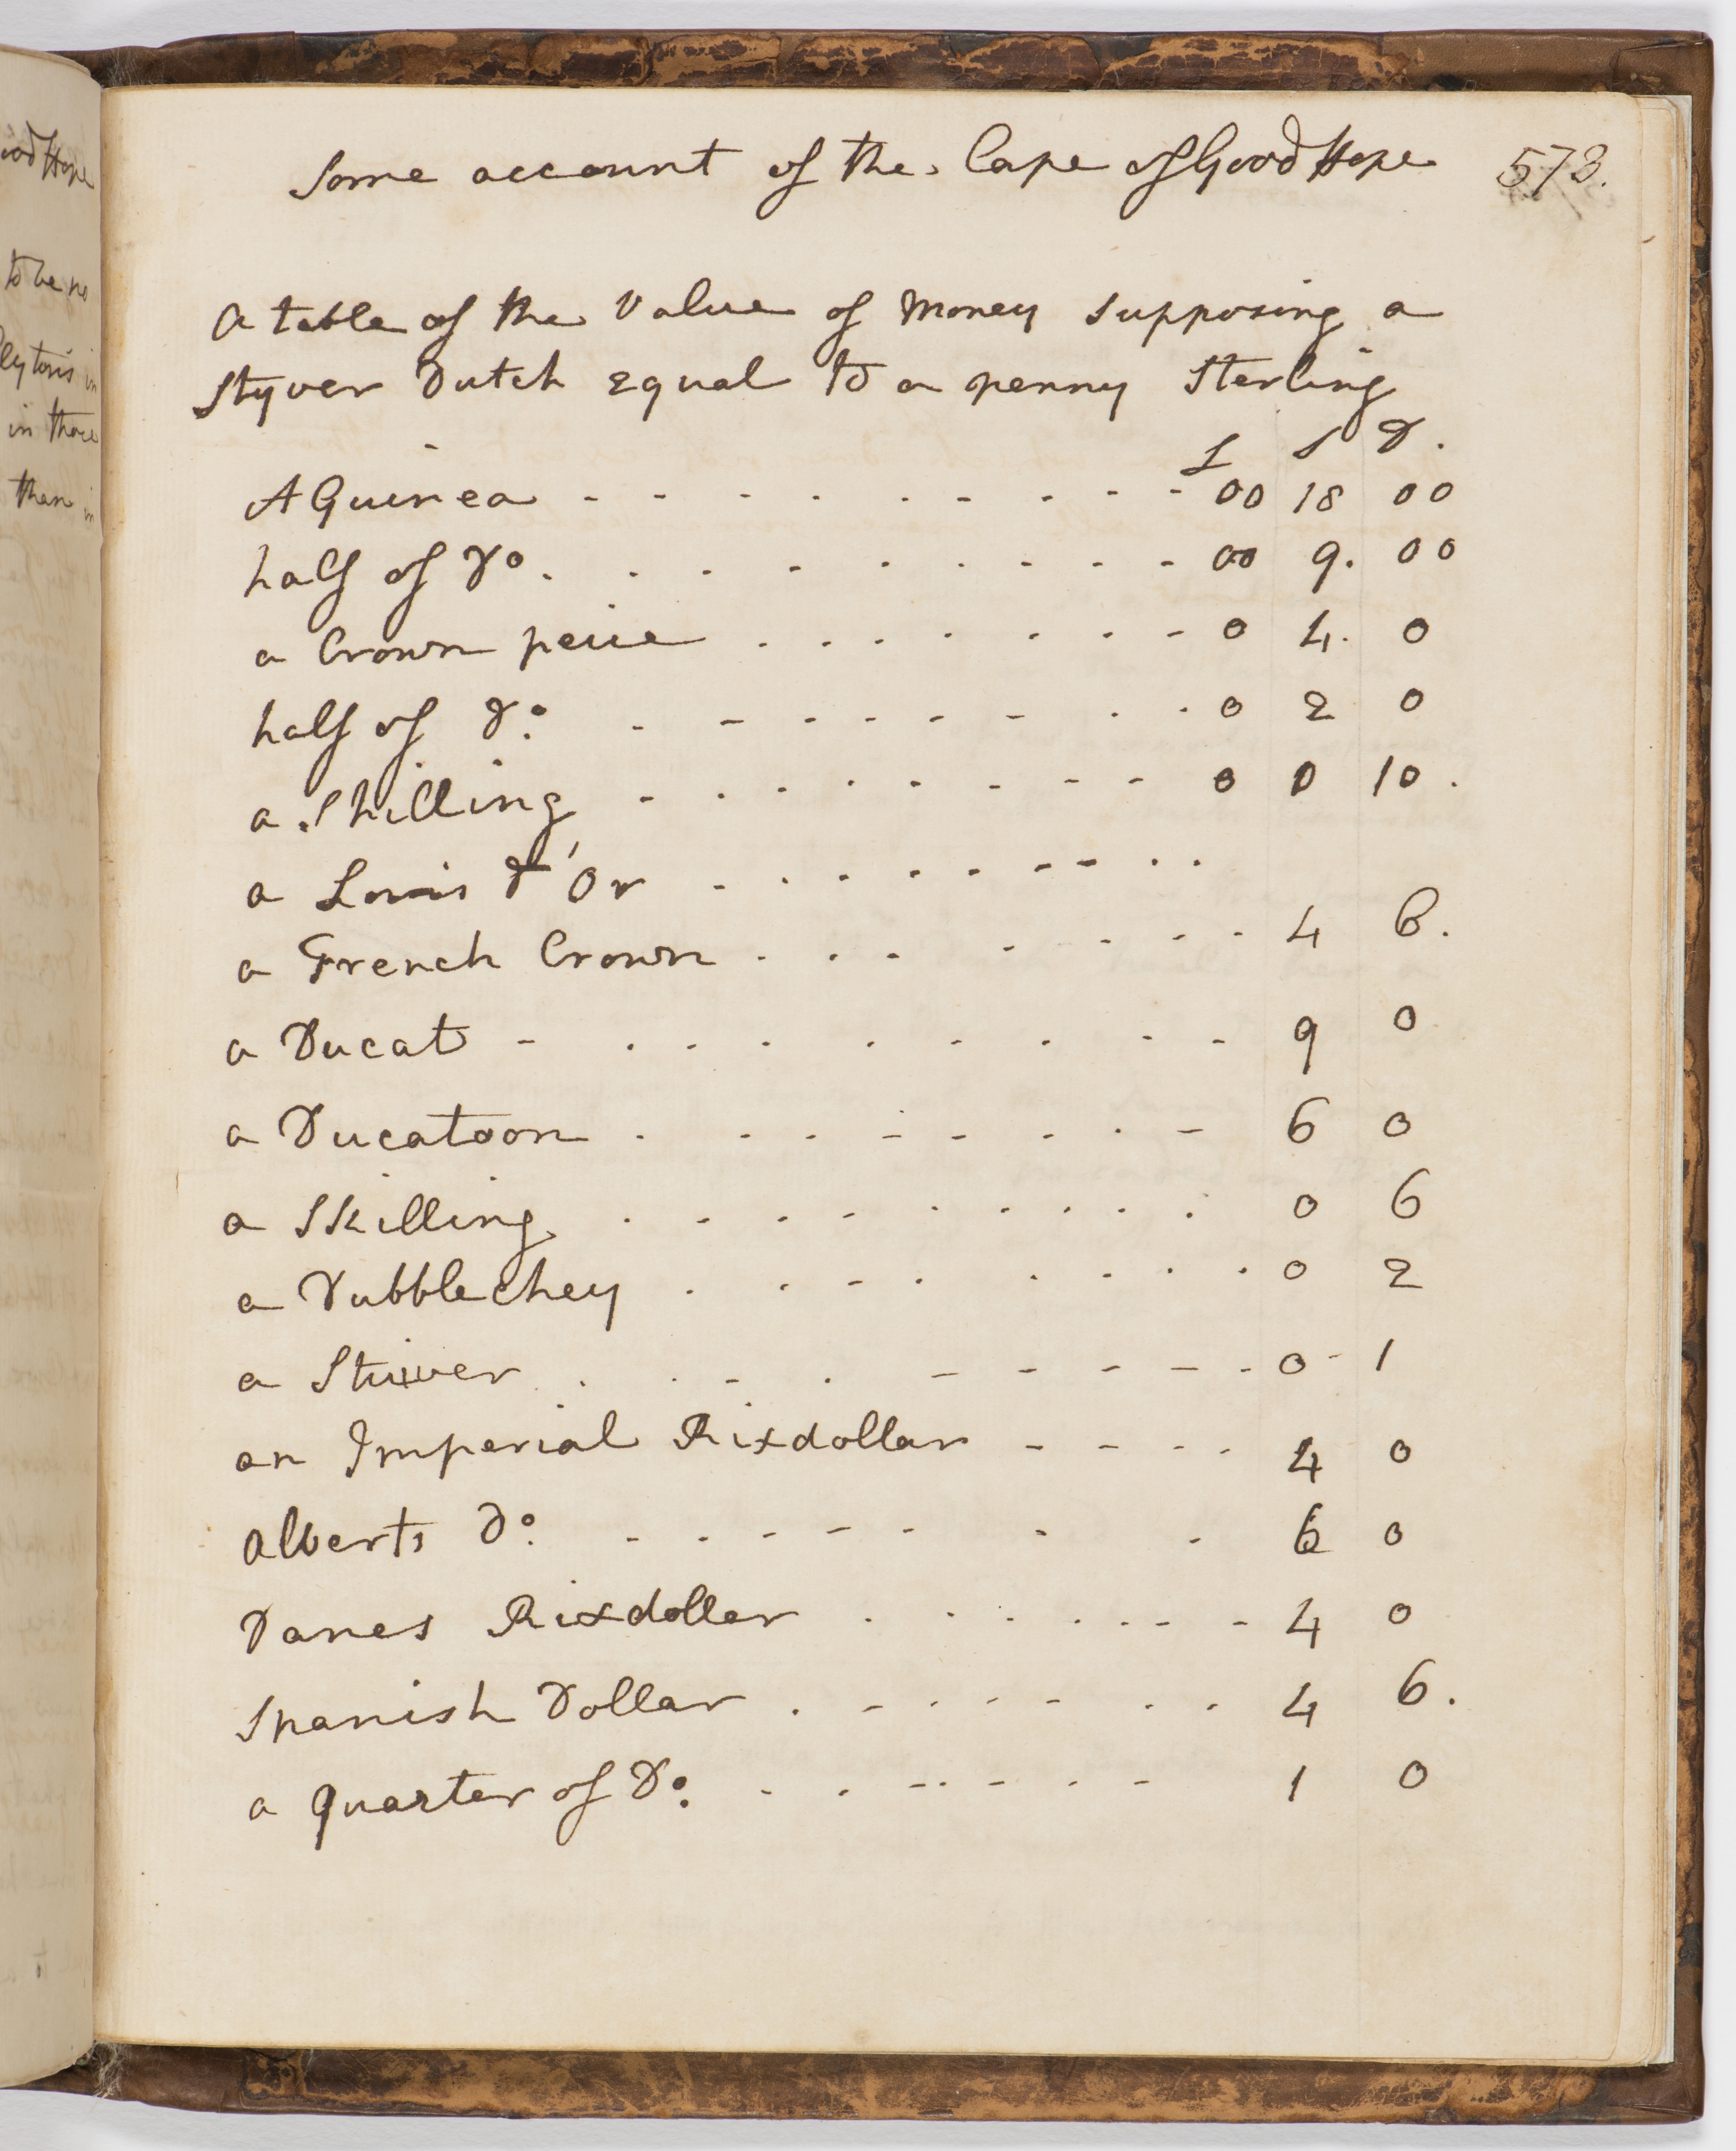 ood Hope
to be no
leytons in
in those
than in
Some account of the Cape of Good Hope 573.
A table of the Value of Money supposing a
Styver Dutch equal to a penny Sterling
£ S D.
A Guinea - - - - - - - - - 00 18 00
half of do. . . . . - . - - - 00 9. 00
a Crown peice . . . . . . - - 0 4. 0
half of do. . - - - - - - . . 0 2 0
a Shilling - . - . . . - - - 0 0 10.
a Louis d'Or - . . . . . - - . .
a French Crown . . . . . . - - 4 6.
a Ducat - . . . . . . . - - 9 0
a Ducatoon . . . . - - . . - 6 0
a Skilling . . . . . . . . . 0 6
a Dubblechey . . . - . . . . . 0 2
a Stuiver . . . - . - - - - . 0 - 1
an Imperial Rixdollar - - . . 4 0
Alberts do. - . . - - - . . 6 0
Danes Rixdoller . . . . . - - 4 0
Spanish Dollar . - . . - - . . 4 6.
a quarter of Do. - . . - - . - 1 0